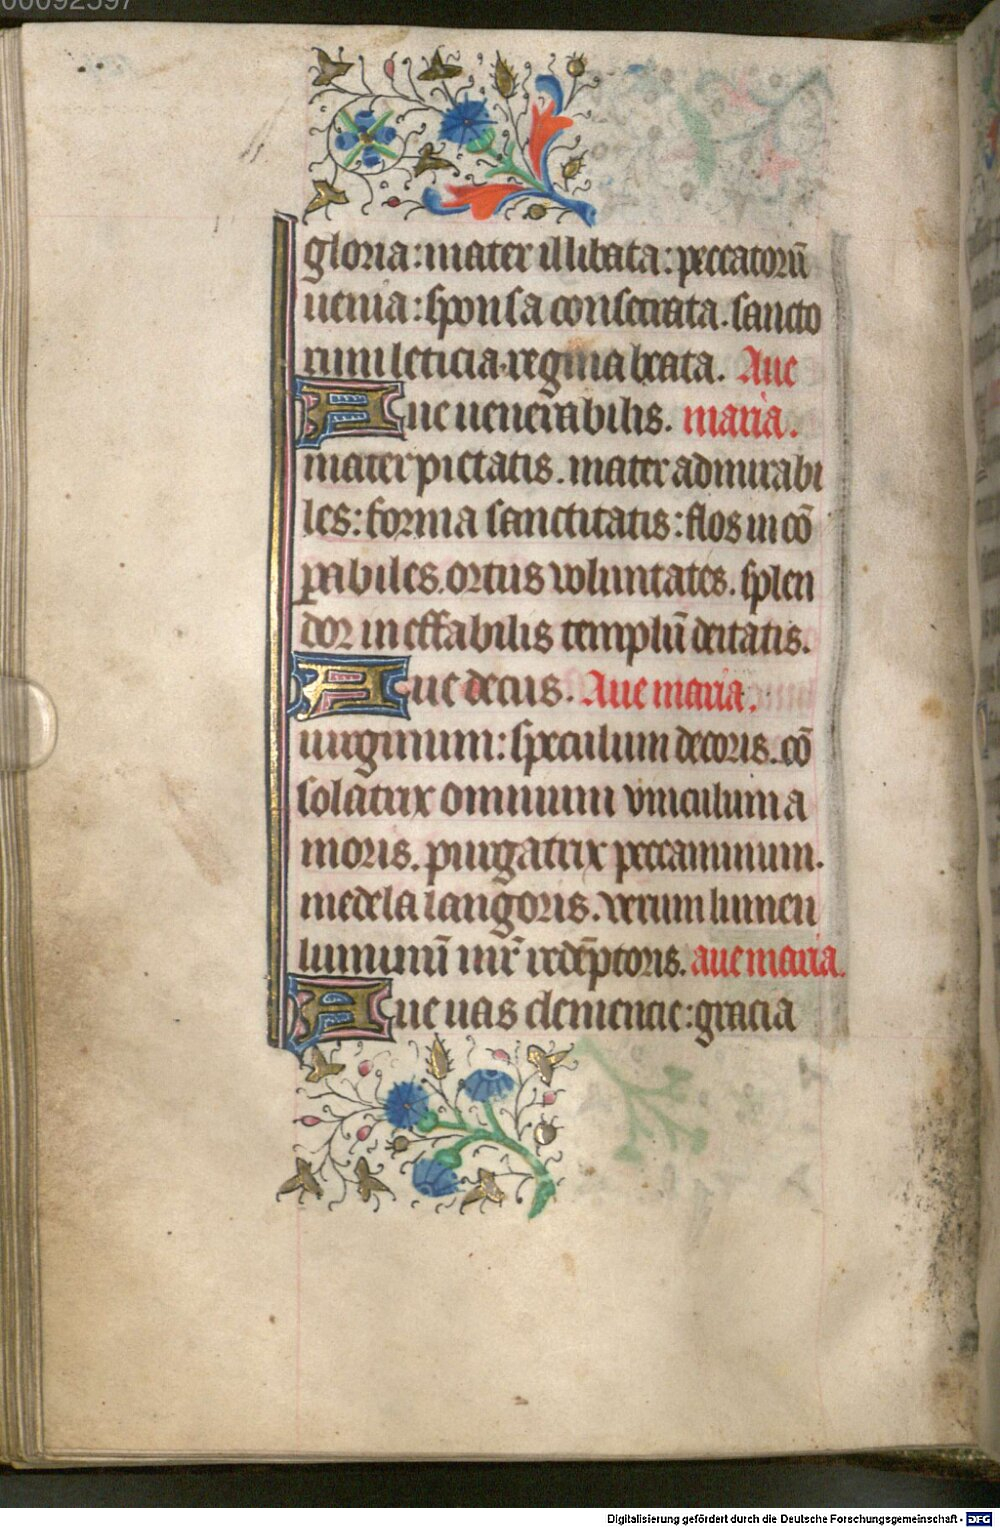 00092597
gloria : mater illibata : peccatorū
uenia : sponsa consecrata . sancto
rum leticia . regina beata . Aue
Aue uenerabilis . maria .
mater pietatis . mater admirabi
les : forma sanctitatis : flos in cō
ꝑabiles . ortus voluntates . splen
dor ineffabilis templū deitatis .
Aue decus . Aue maria .
uirginum : speculum decoris . cō
solatrix omnium vniculum a
moris . purgatrix peccaminum .
medela langoris . verum lumen
luminū mr̄ redēptoris . aue maria .
Aue uas clemencie : gracia
Digitalisierung gefördert durch die Deutsche Forschungsgemeinschaft - DFG